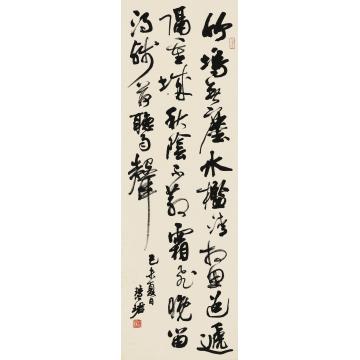 竹塢無塵水檻清相思迢遞
隔重城秋陰不散霜飛晚留
得殘荷聽雨聲
己未夏日